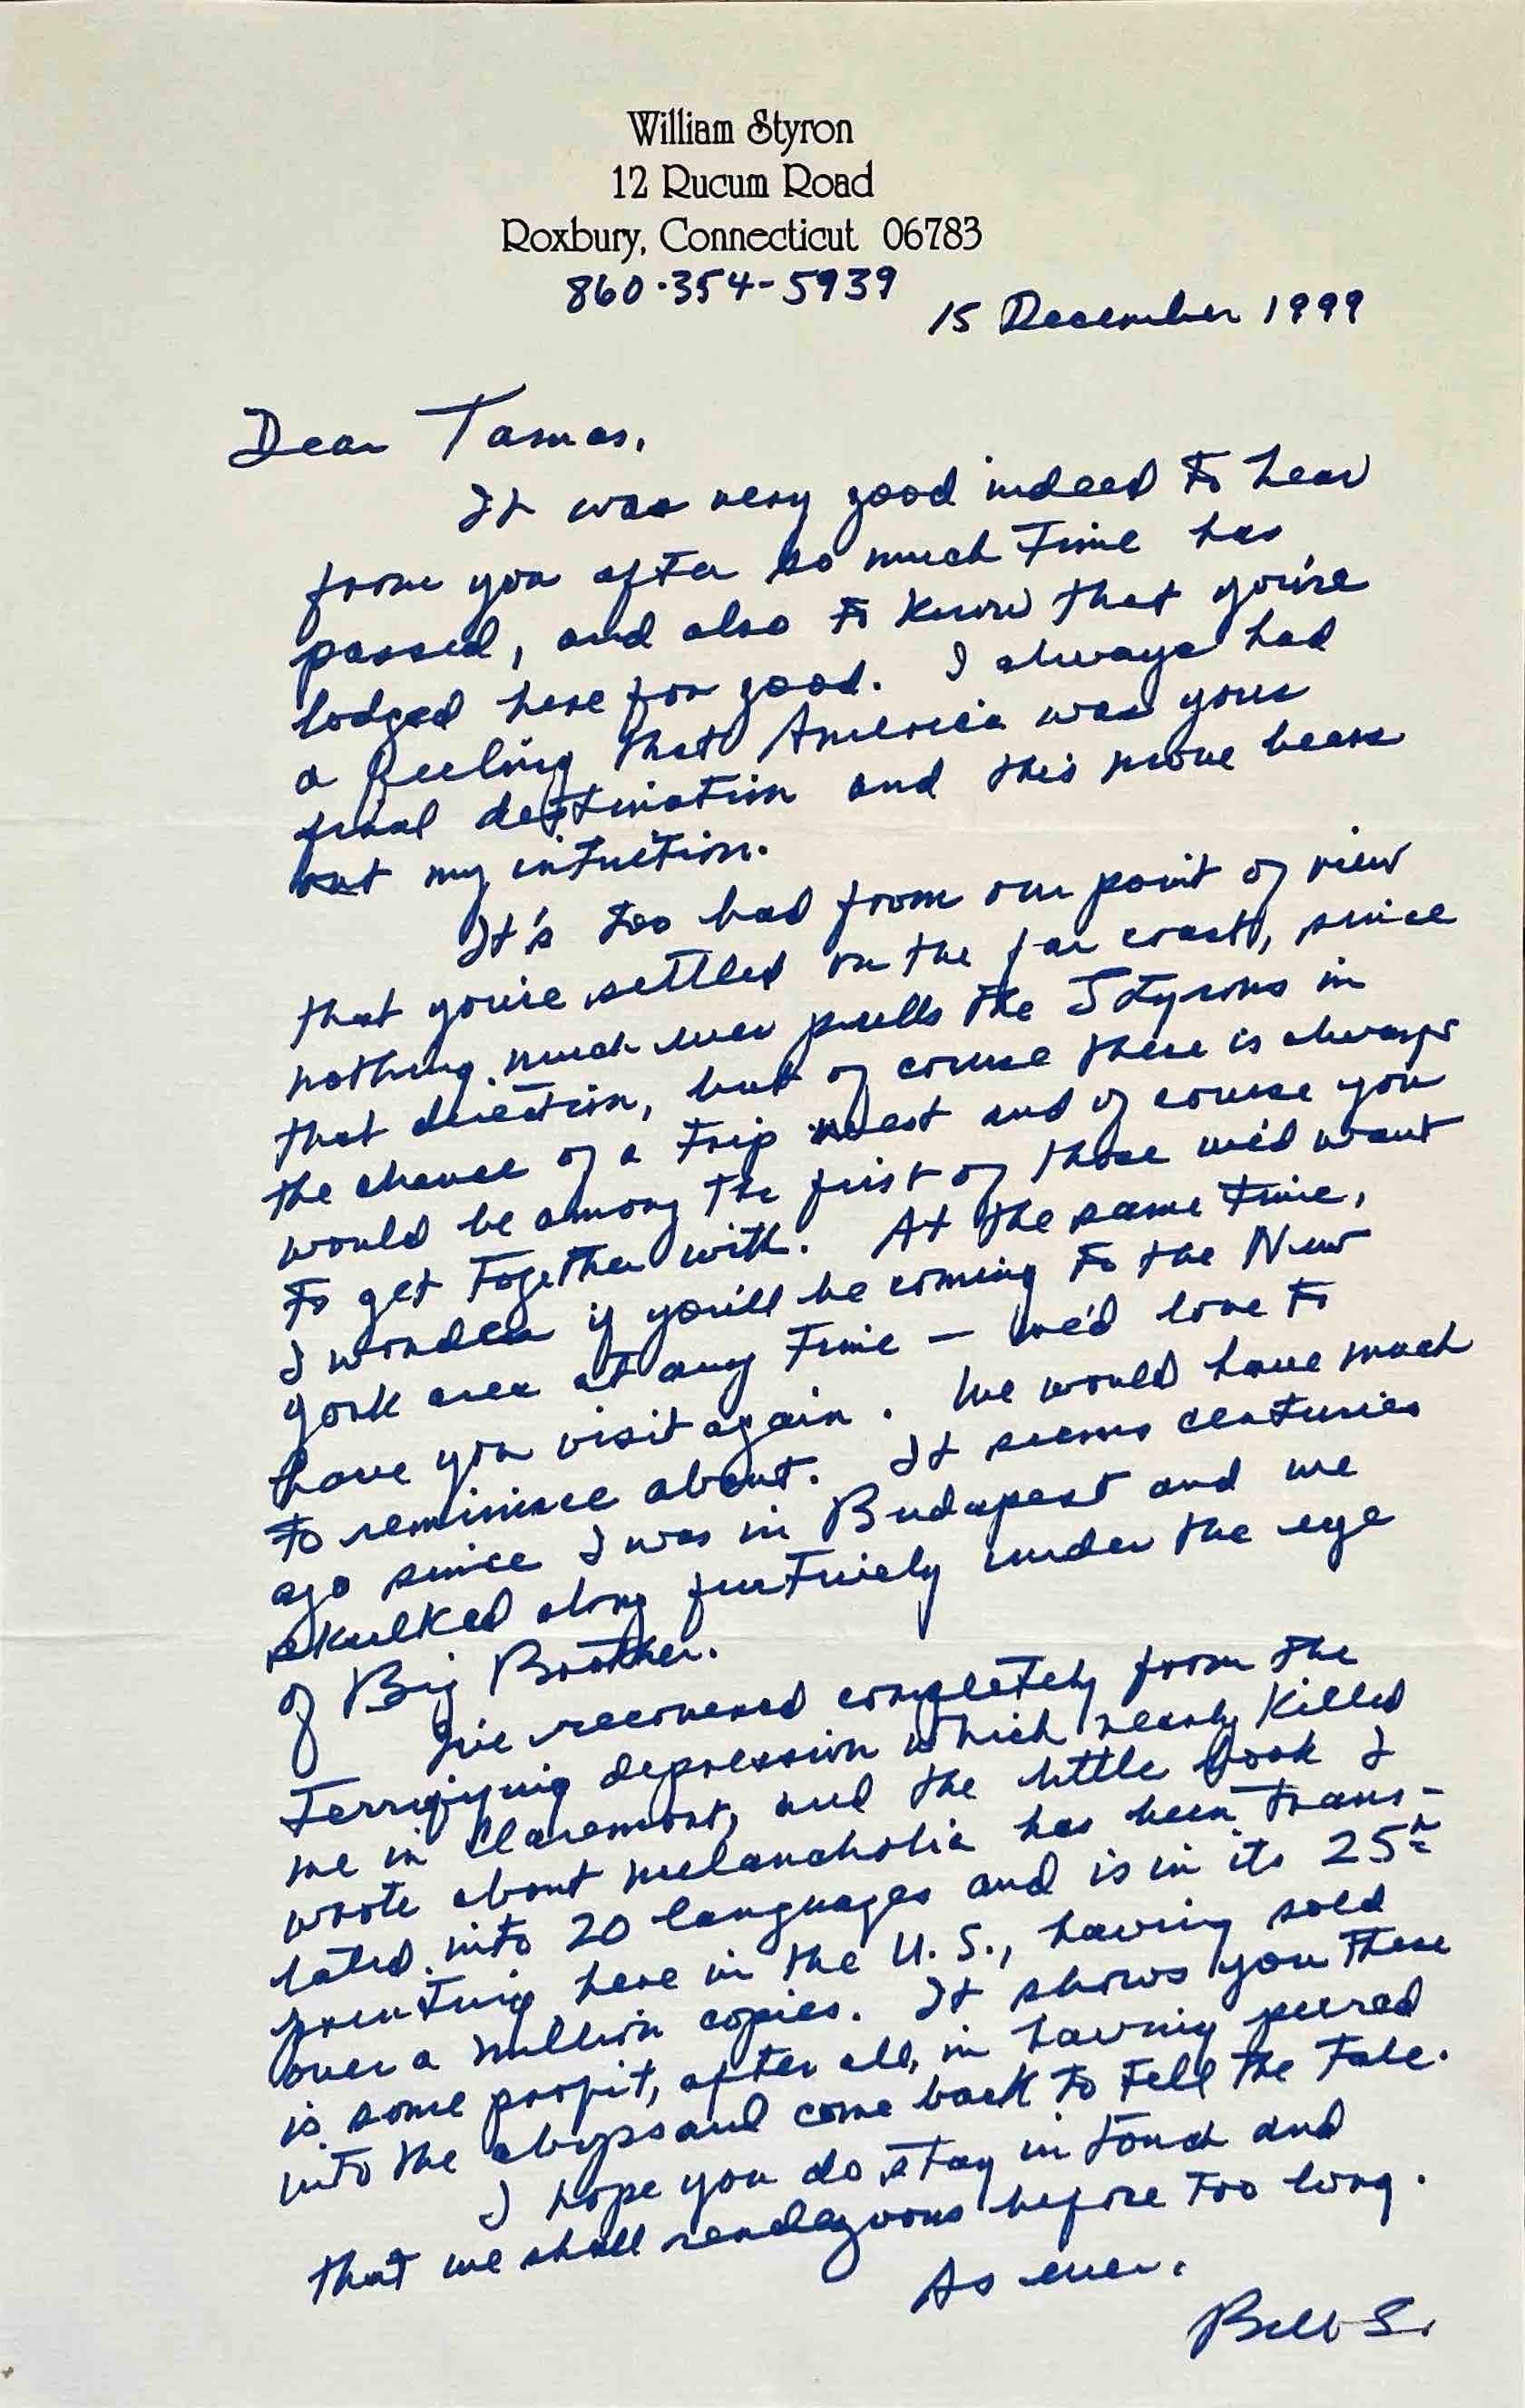 William Styron
12 Rucum Road
Roxbury, Connecticut 06783
860·354-5939
15 December 1999
Dear Tamas,
It was very good indeed to hear
from you after so much time has
passed, and also to know that you're
lodged here for good. I always had
a feeling that America was your
final destination and this move bears
out my intuition.
It's too bad from our point of view
that you're settled on the far coast, since
nothing much ever pulls the Styrons in
that direction, but of course there is always
the chance of a trip west and of course you
would be among the first of those we'd want
to get together with. At the same time,
I wonder if you'll be coming to the New
York area at any time — we'd love to
have you visit again. We would have much
to reminisce about. It seems centuries
ago since I was in Budapest and we
skulked along furtively under the eye
of Big Brother.
I've recovered completely from the
terrifying depression which nearly killed
me in Claremont, and the little book I
wrote about melancholia has been trans-
lated into 20 languages and is in its 25th
printing here in the U.S., having sold
over a million copies. It shows you there
is some profit, after all, in having peered
into the abyss and come back to tell the tale.
I hope you do stay in touch and
that we shall rendezvous before too long.
As ever,
Bill S.